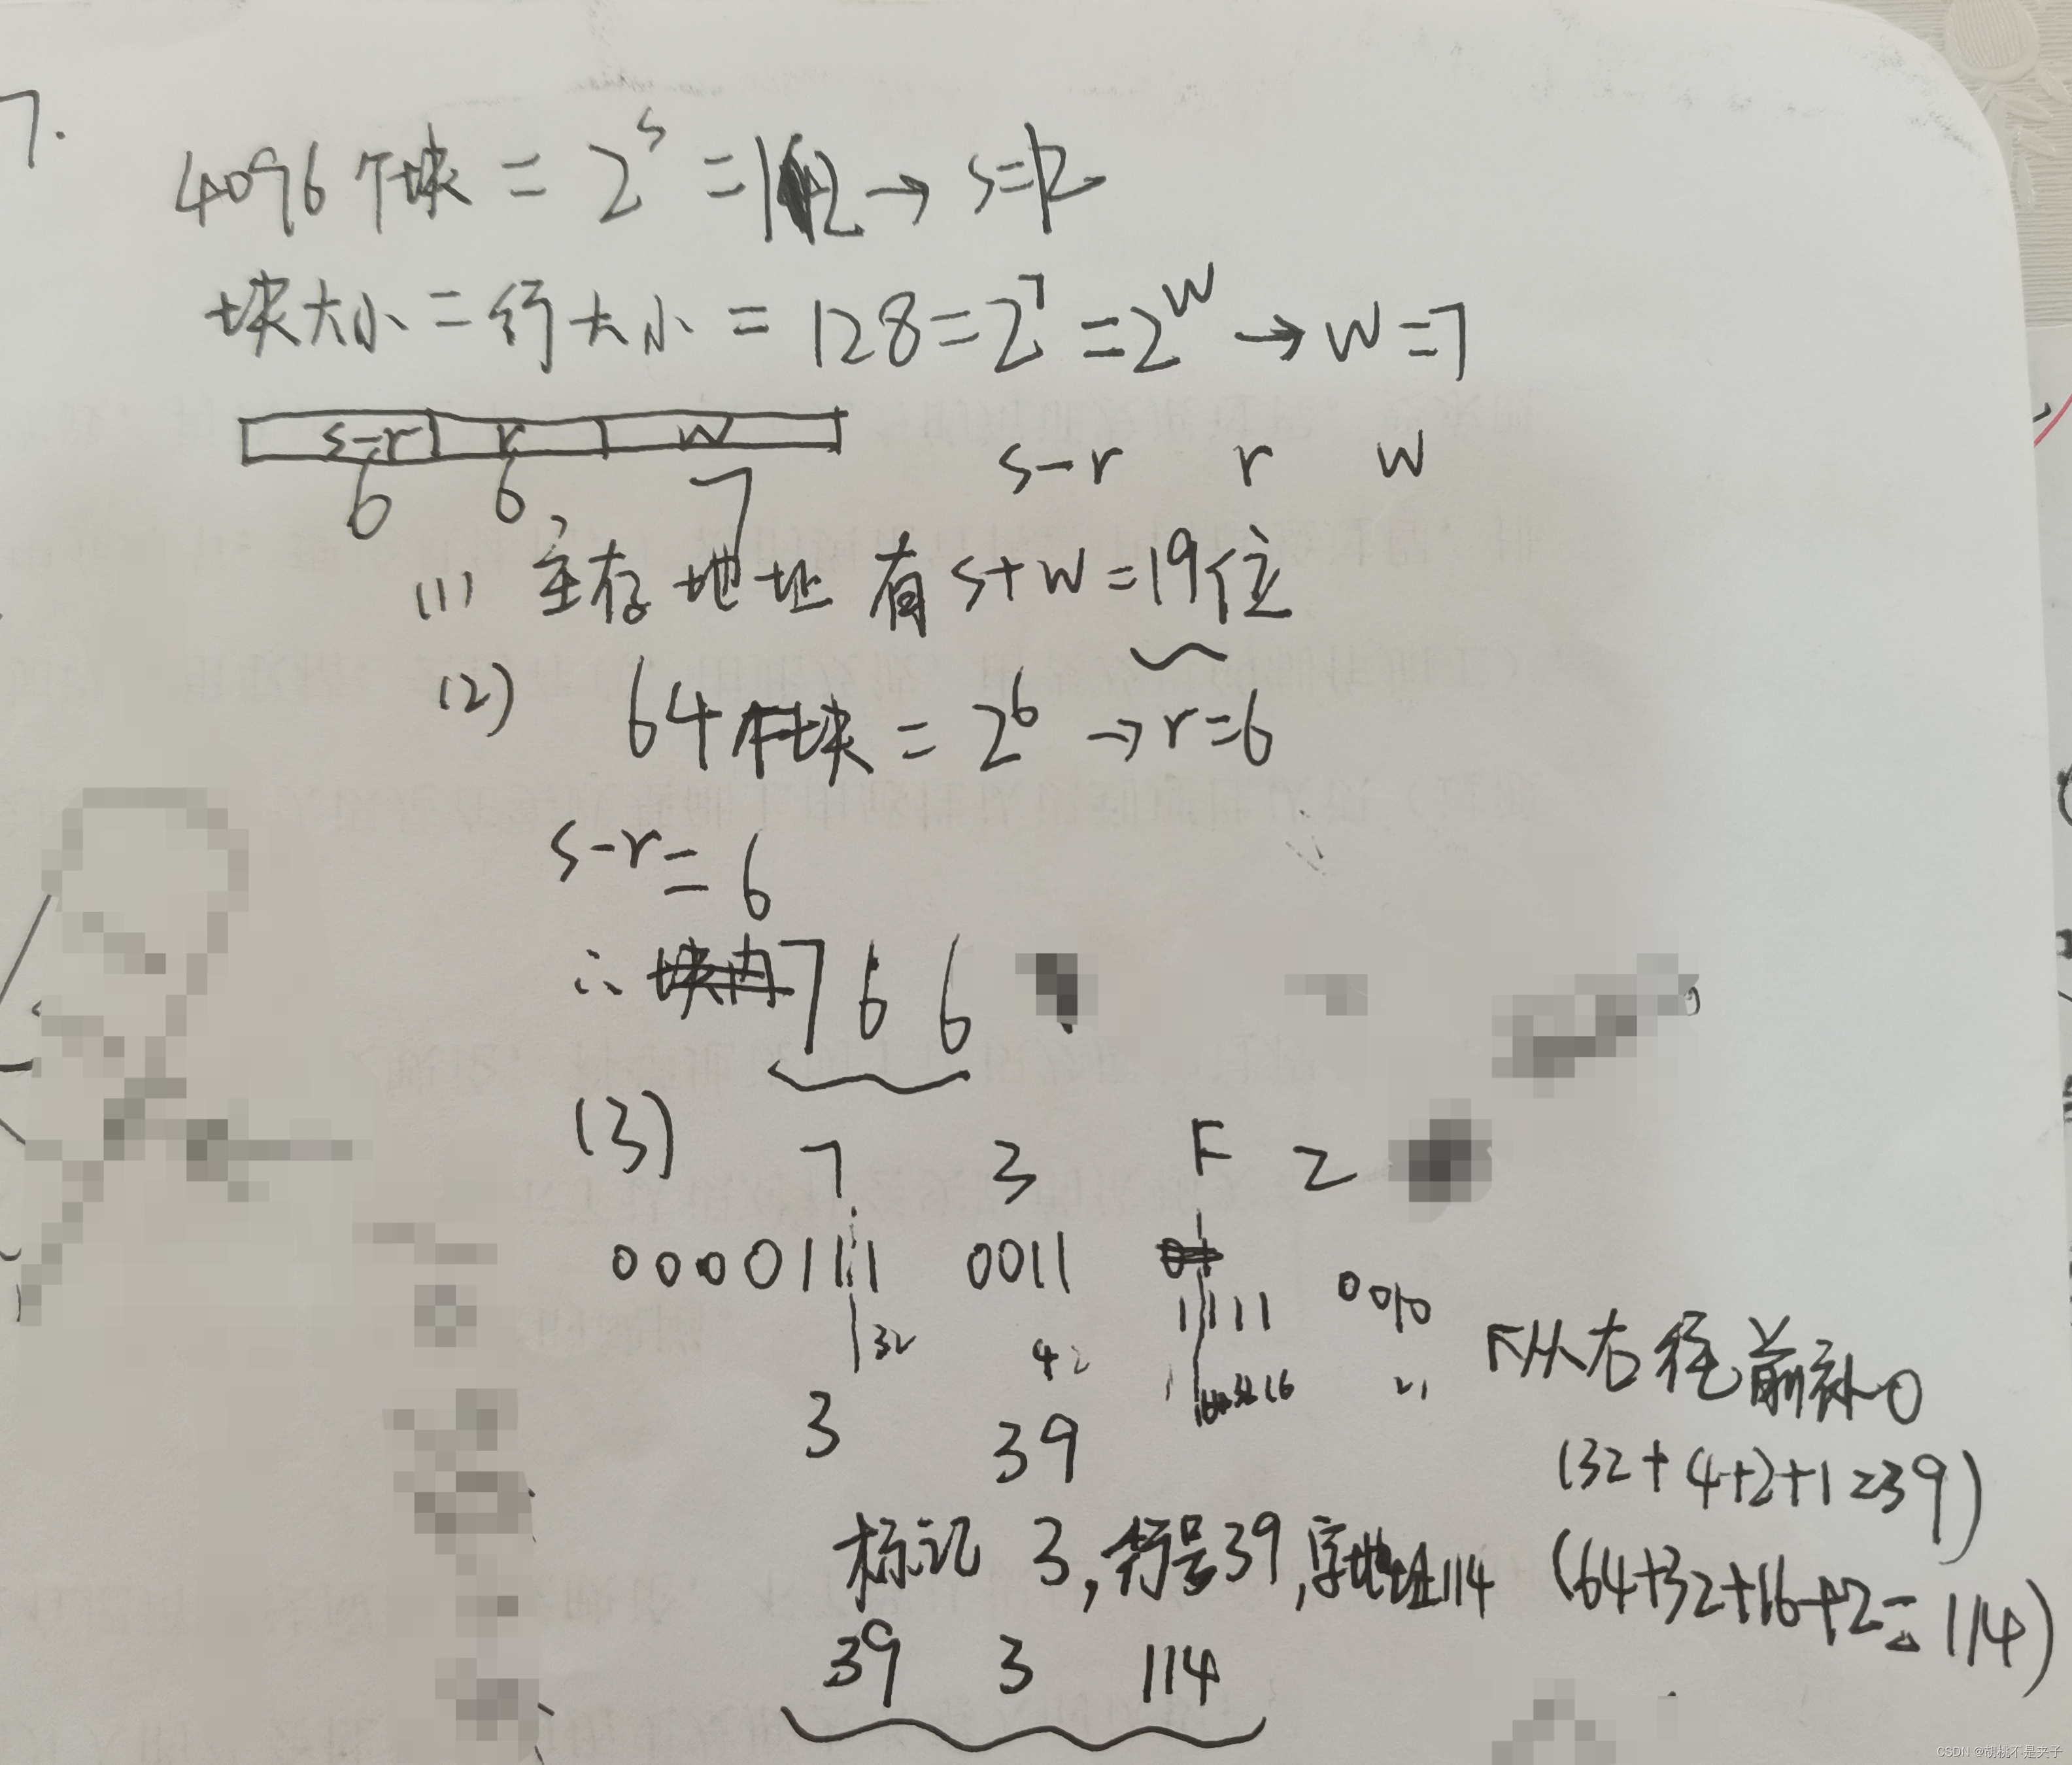 7.
4096个块 = 2^s = 12 → s=12
块大小 = 行大小 = 128 = 2^7 = 2^w → w=7
s-r r w
6 6 7
s-r r w
(1) 主存地址有 s+w=19位
(2) 64个块 = 2^6 → r=6
s-r = 6
∴ 7 6 6
(3) 7 3 F 2
0000111 0011 1111 0010
32 4 2 1 64 32 16 2
3 39
从右往前补0
(32+4+2+1=39)
标记 3, 行号39, 字地址114 (64+32+16+2=114)
39 3 114
CSDN @胡桃不是夹子